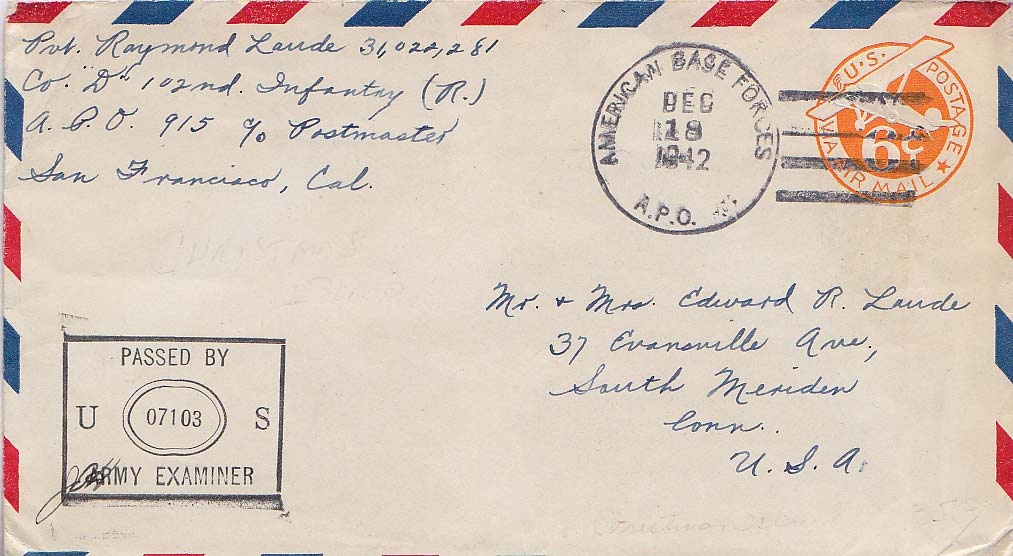 Pvt. Raymond Laude 31,022,281
Co. "D" 102nd. Infantry (R.)
A. P. O. 915 c/o Postmaster
San Francisco, Cal.
AMERICAN BASE FORCES
DEC
18
1942
A.P.O.
U.S. POSTAGE
6¢
VIA AIR MAIL
CHRISTMAS
Mr. + Mrs. Edward R. Laude
37 Evansville Ave.,
South Meriden
Conn.
U. S. A.
PASSED BY
U 07103 S
ARMY EXAMINER